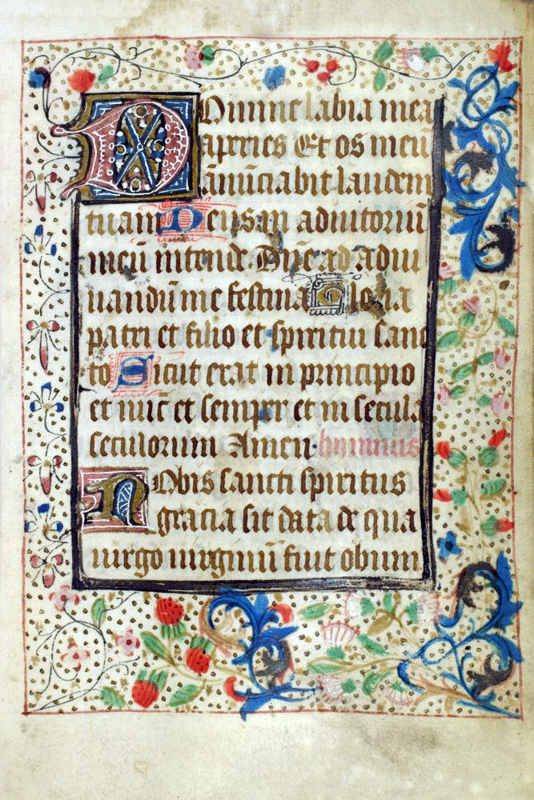 Domine labia mea
aperies Et os meū
ānūciabit laudem
tuam Deusan adiutoriū
meū intende Dn̄e ad adiu
uandū me festina Gloria
patri et filio et spiritui sanc
to Sicut erat in principio
et nūc et semper et in secula
seculorum Amen hminus
Nobis sancti spiritus
gracia sit data de qua
uirgo uirginū fuit obum